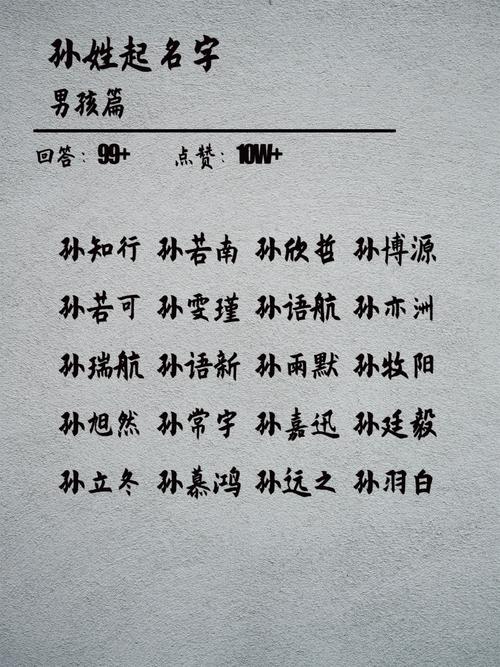 孙姓起名字
男孩篇
回答：99+ 点赞：10W+
孙知行 孙若南 孙欣哲 孙博源
孙若可 孙雯瑾 孙语航 孙亦洲
孙瑞航 孙语新 孙雨默 孙牧阳
孙旭然 孙常宇 孙嘉迅 孙廷毅
孙立冬 孙慕鸿 孙远之 孙羽白